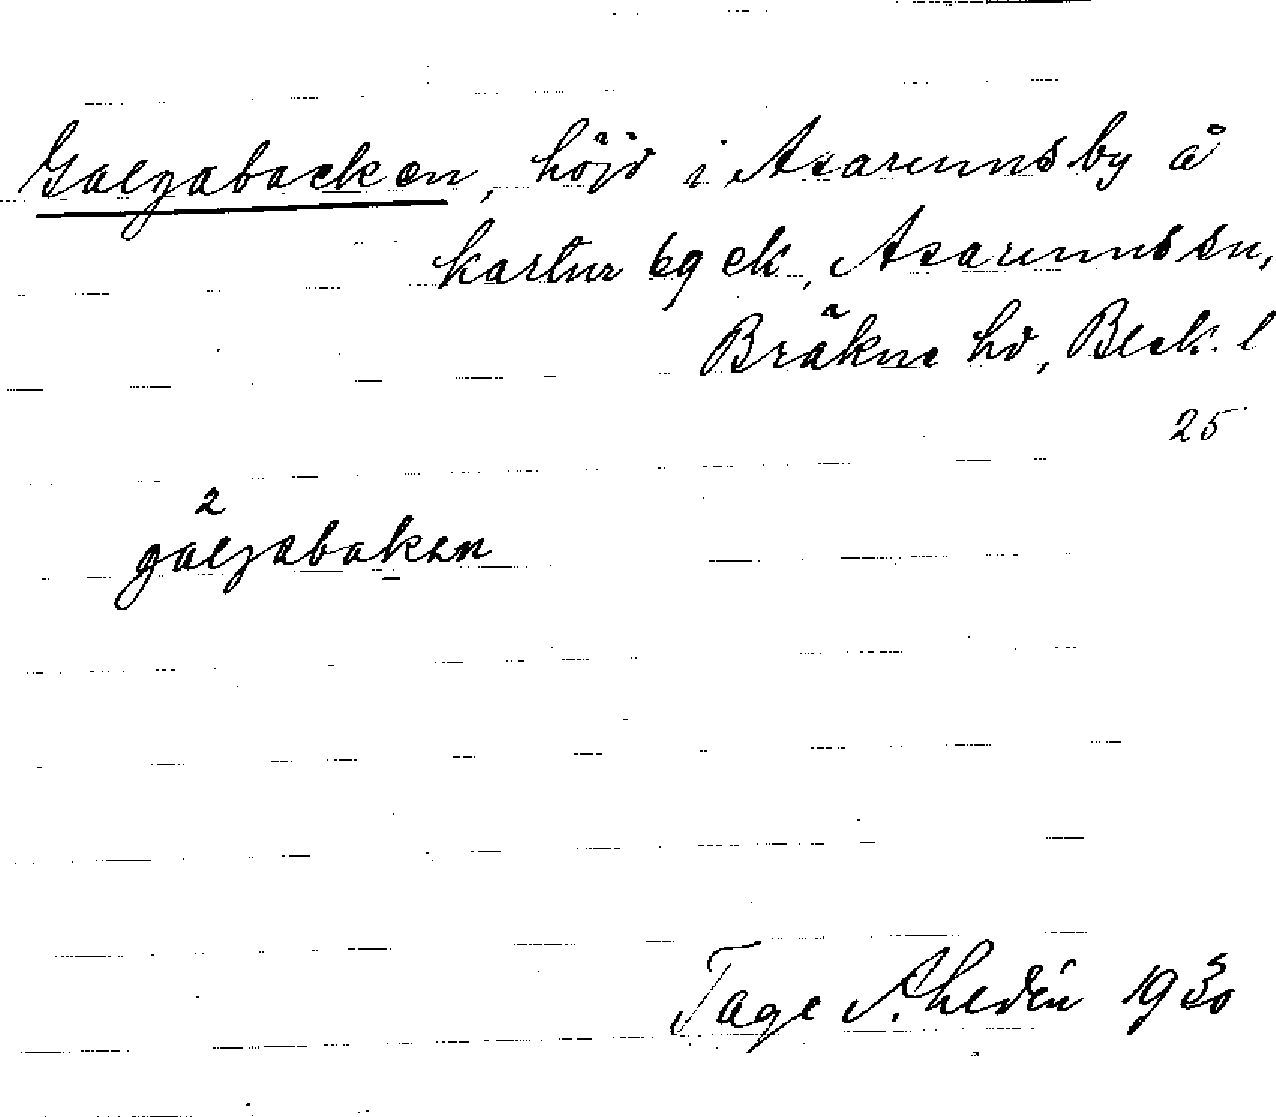 Galgabacken, höjd i Asarums by å
kartur bg ek, Asarums sn,
Bräkne hd, Blek. l
25
2
galgabakan
Tage Ahldén 1930